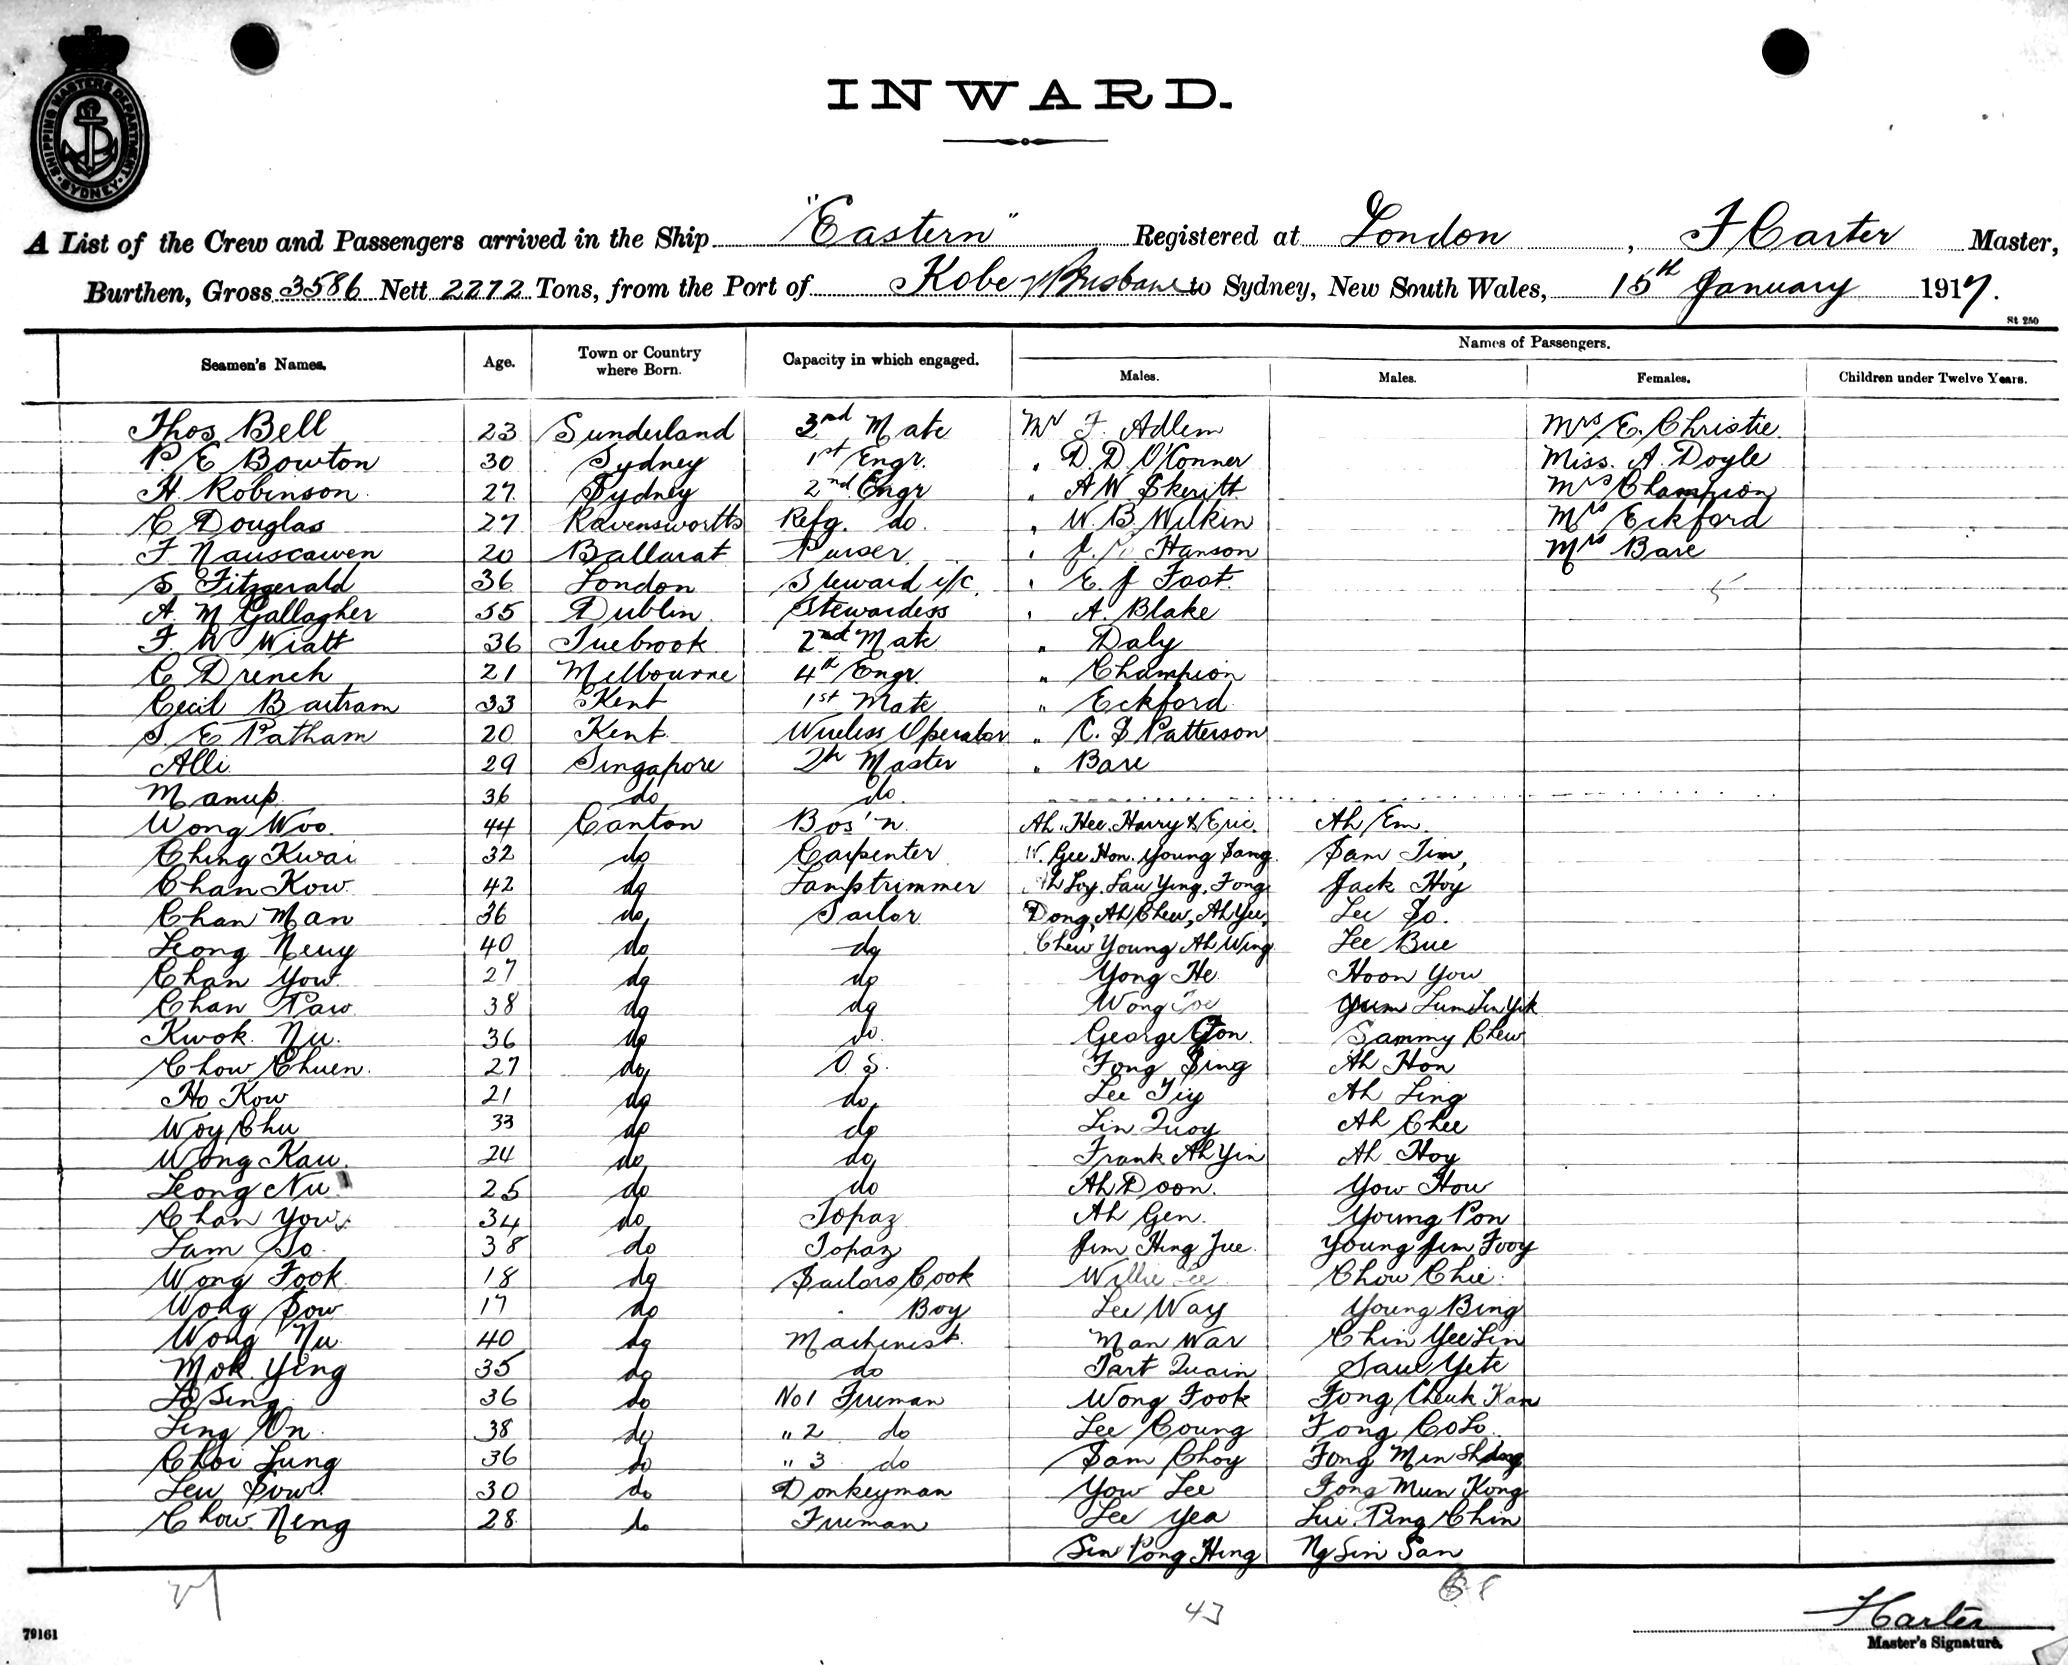 SHIPPING MASTERS DEPARTMENT · SYDNEY ·
INWARD.
A List of the Crew and Passengers arrived in the Ship "Eastern" Registered at London, F Carter Master,
Burthen, Gross 3586 Nett 2272 Tons, from the Port of Kobe Brisbane to Sydney, New South Wales, 15th January 1917.
St 250
Seamen's Names. Age. Town or Country where Born. Capacity in which engaged. Names of Passengers.
Males. Males. Females. Children under Twelve Years.
Thos Bell 23 Sunderland 3nd Mate Mr F. Adlem Mrs E. Christie
P. E Bowton 30 Sydney 1st Engr. " D. D O'Conner Miss. A. Doyle
H. Robinson 27 Sydney 2nd Engr " A W Skeritt Mrs Champion
C Douglas 27 Ravensworth Refg. do. " W. B. Wilkin Mrs Eckford
F Nauscawen 20 Ballarat Purser " J. Hanson Mrs Bare
S Fitzgerald 36 London Steward i/c. " E. J Foot.
A. M Gallagher 55 Dublin Stewardess " A. Blake
F. W Wiatt 36 Tuebrook 2nd Mate " Daly
C Drench 21 Melbourne 4th Engr. " Champion
Cecil Bartram 33 Kent 1st Mate " Eckford
S. E Patham 20 Kent Wireless Operator " C. S Patterson
Alli 29 Singapore Qr Master " Bare
Manup 36 do do.
Wong Woo. 44 Canton Bos'n. Ah. Hee. Harry & Eric. Ah Em
Ching Kwai 32 do Carpenter W. Gee. Hon. Young Sang Sam Tim,
Chan Kow 42 do Lamptrimmer Ah Loy. Lau Ying. Fong Jack Hoy
Chan Man 36 do Sailor Dong, Ah Chew, Ah Yee, Lee So.
Leong Neuy 40 do do Chew Young Ah Wing Lee Bue
Chan Yow 27 do do Yong He Hoon You
Chan Paw 38 do do Wong Joe Yum Lum Lin Yik
Kwok Nu. 36 do do George Gon. Sammy Chew
Chow Chuen. 27 do O. S. Fong Sing Ah Hon
Ho Kow 21 do do. Lee Tiy Ah Ling
Woy Chu 33 do do Lin Quoy Ah Chee
Wong Kau 24 do do Frank Ah Yin Ah Hoy
Leong Nu 25 do do Ah Doon. Yow Hou
Chan Yow 34 do Topaz Ah Gen. Young Pon
Lam So. 38 do Topaz Jim Hing Jue. Young Jim Fooy
Wong Fook 18 do Sailors Cook Willie Lee Chow Chie.
Wong Sow 17 do " Boy Lee Way Young Bing
Wong Nu 40 do Machinist. Man War Chin Yee Lin
Mok Ying 35 do do Tart Quain Saul Yete
Lo Sing 36 do No 1 Fireman Wong Fook Fong Cheuk Kan
Ling On. 38 do " 2 do Lee Coung Fong Co Lo.
Choi Lung 36 do " 3 do Sam Choy Fong Men
Leu Sow 30 do Donkeyman Yow Lee Fong Mun Kong
Chow Neng 28 do Fireman Lee Yea Lui Ping Chin
Sin Pong Hing Ng Sin San
43
F Carter
79161
Master's Signature.